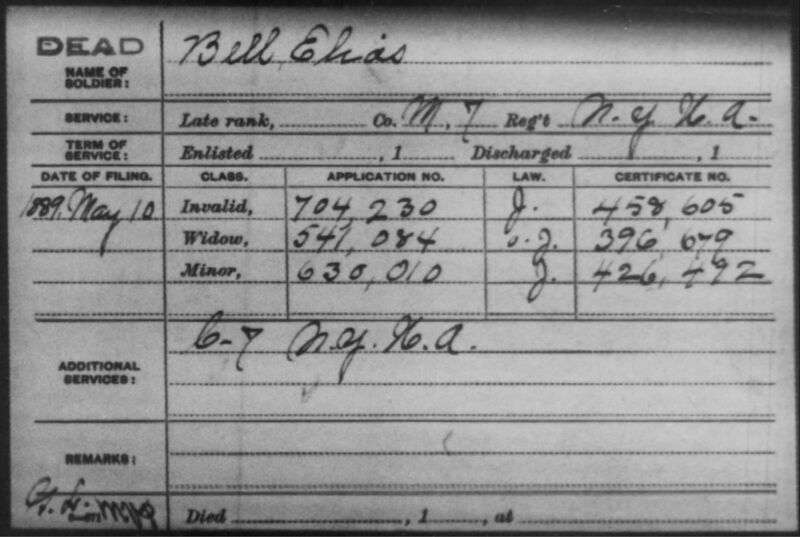 DEAD
NAME OF SOLDIER: Bell, Elias
SERVICE: Late rank, Co. M, 7 Reg't N. Y. H. A.
TERM OF SERVICE: Enlisted , 1 Discharged , 1
DATE OF FILING. CLASS. APPLICATION NO. LAW. CERTIFICATE NO.
1889, May 10 Invalid, 704,230 J. 458,605
Widow, 541,084 J. 396,679
Minor, 630,010 J. 426,492
ADDITIONAL SERVICES: C-7 N.Y. H. A.
REMARKS:
Died , 1 , at